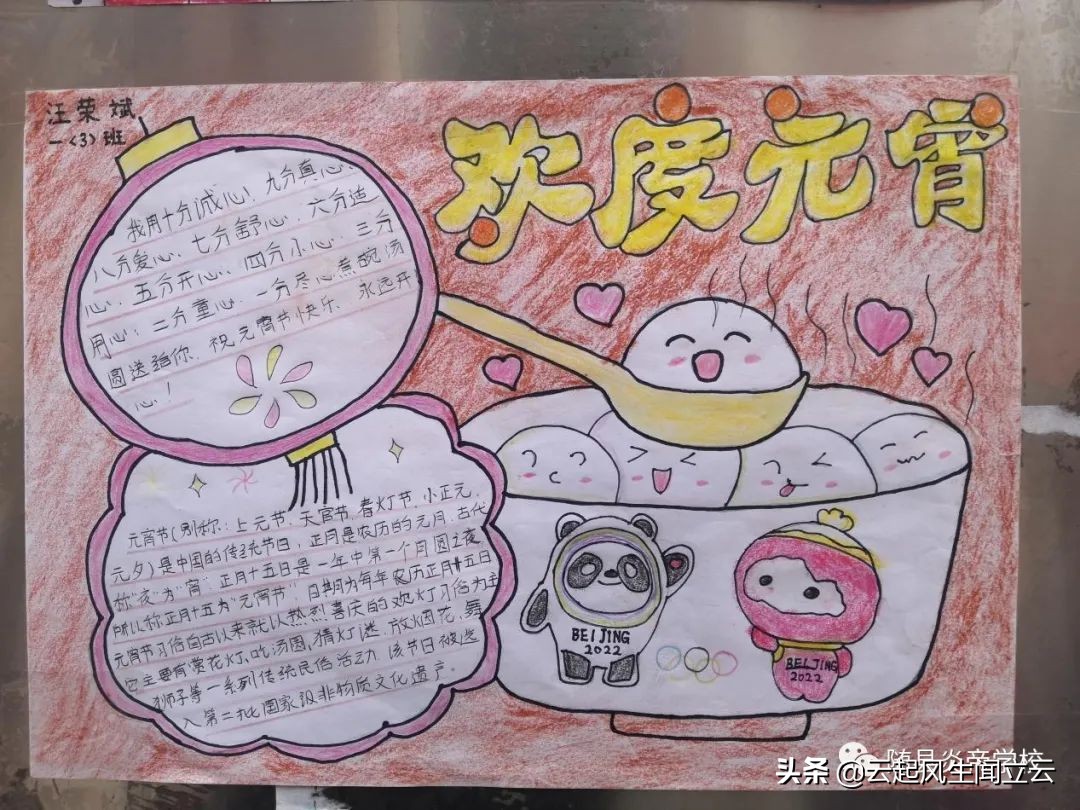 汪荣斌
一〈3〉班
欢度元宵
我用十分诚心、九分真心、
八分爱心、七分舒心、六分适
心、五分开心、四分小心、三分
用心、二分童心、一分尽心煮碗汤
圆送给你、祝元宵节快乐、永远开
心！
元宵节(别称：上元节、天官节、春灯节、小正元、
元夕)是中国的传统节日，正月是农历的元月，古代
称“夜”为“宵”正月十五日是一年中第一个月圆之夜
所以称正月十五为“元宵节”，日期为每年农历正月十五日
元宵节习俗自古以来就以热烈喜庆的观灯习俗为主
它主要有赏花灯、吃汤圆、猜灯谜、放烟花、舞
狮子等一系列传统民俗活动，该节日被选
入第二批国家级非物质文化遗产。
BEIJING
2022
BEIJING
2022
随县炎帝学校
头条 @云起风生闻立云